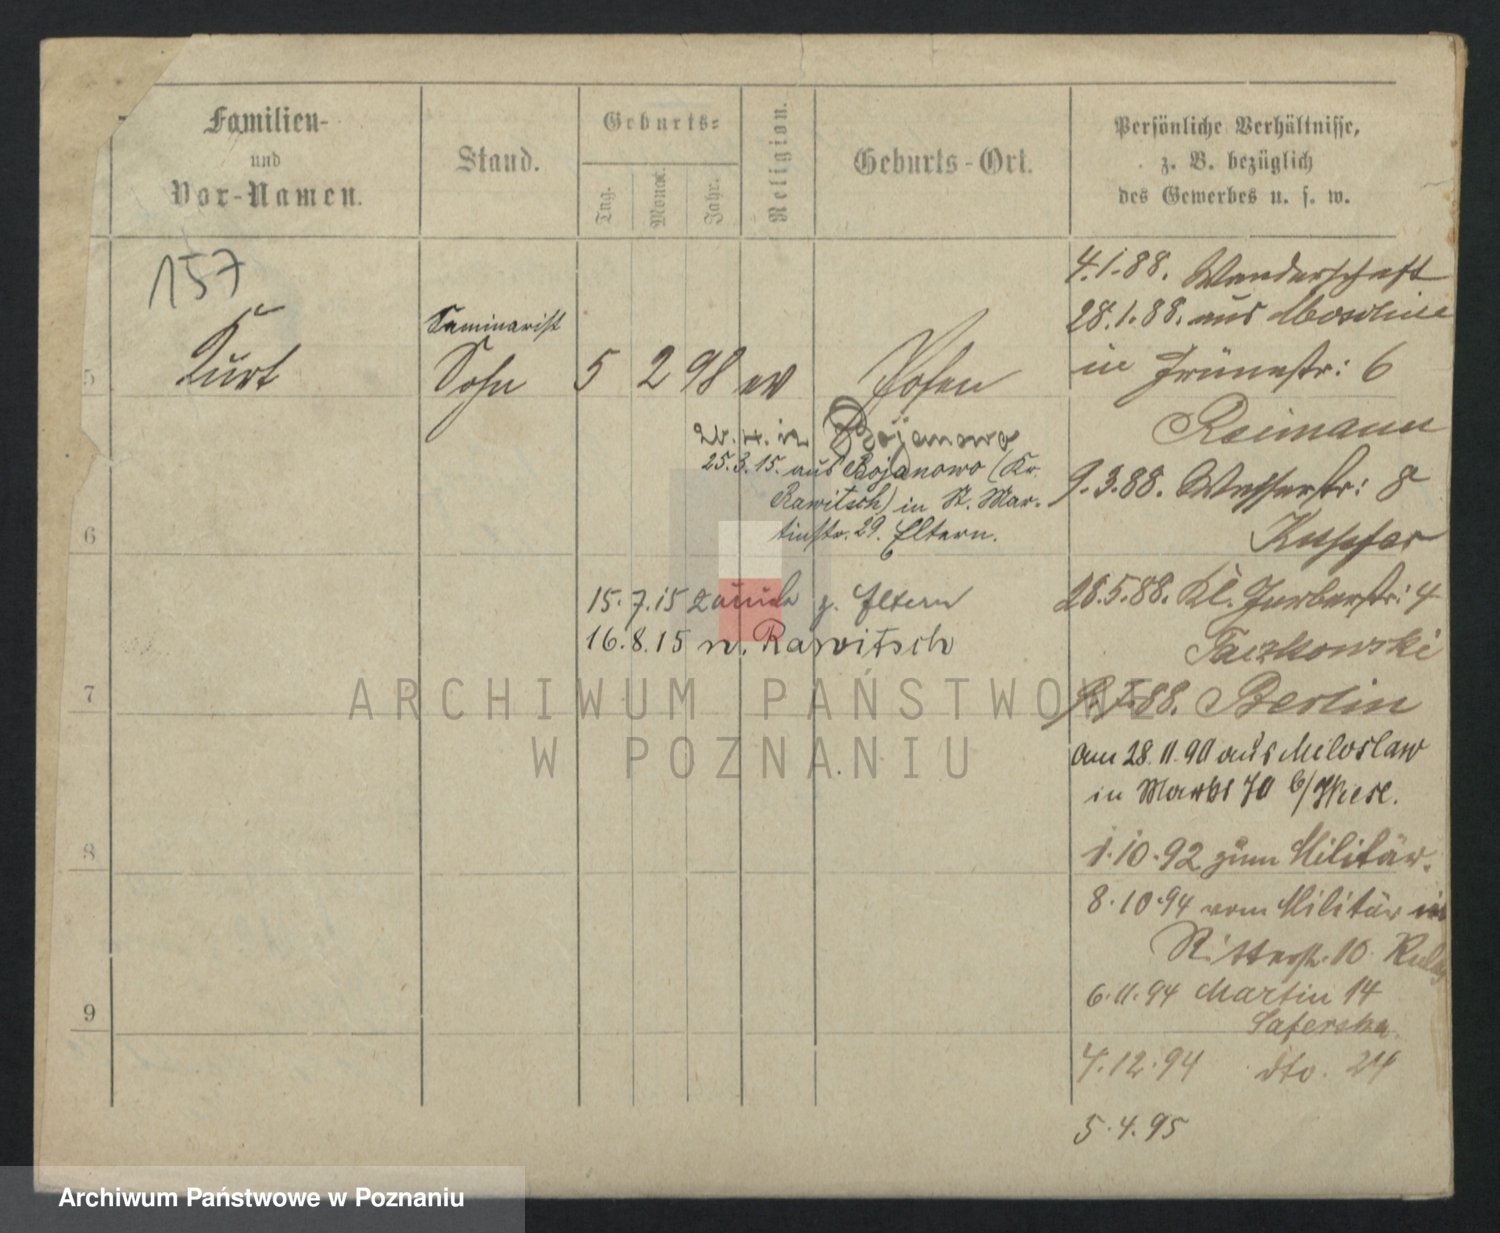 Familien-
und
Vor-Namen.
Stand.
Geburts-
Tag.
Monat.
Jahr.
Religion.
Geburts-Ort.
Persönliche Verhältnisse,
z. B. bezüglich
des Gewerbes u. s. w.
157
5
Kurt
Seminarist
Sohn
5 2 98 ev Posen
in Bojanowo
25.3.15. aus Bojanowo (Kr.
Rawitsch) in St. Mar-
tinstr. 29. Eltern.
6
15.7.15 zurück z. Eltern
16.8.15 n. Rawitsch
7
8
9
4.1.88. Wanderschaft
28.1.88. aus
in Grünestr: 6
Reimann
9.3.88. Wasserstr: 8
Kupfer
28.5.88. Kl. Gerberstr: 4
Taczkowski
88. Berlin
am 28.11.90 aus Miloslaw
in Markt 70 b/Wiese.
1.10.92 zum Militär.
8.10.94 vom Militär in
Ritterstr. 10
6.11.94 Martin 14
4.12.94 dto. 24
5.4.95
ARCHIWUM PAŃSTWOWE
W POZNANIU
Archiwum Państwowe w Poznaniu